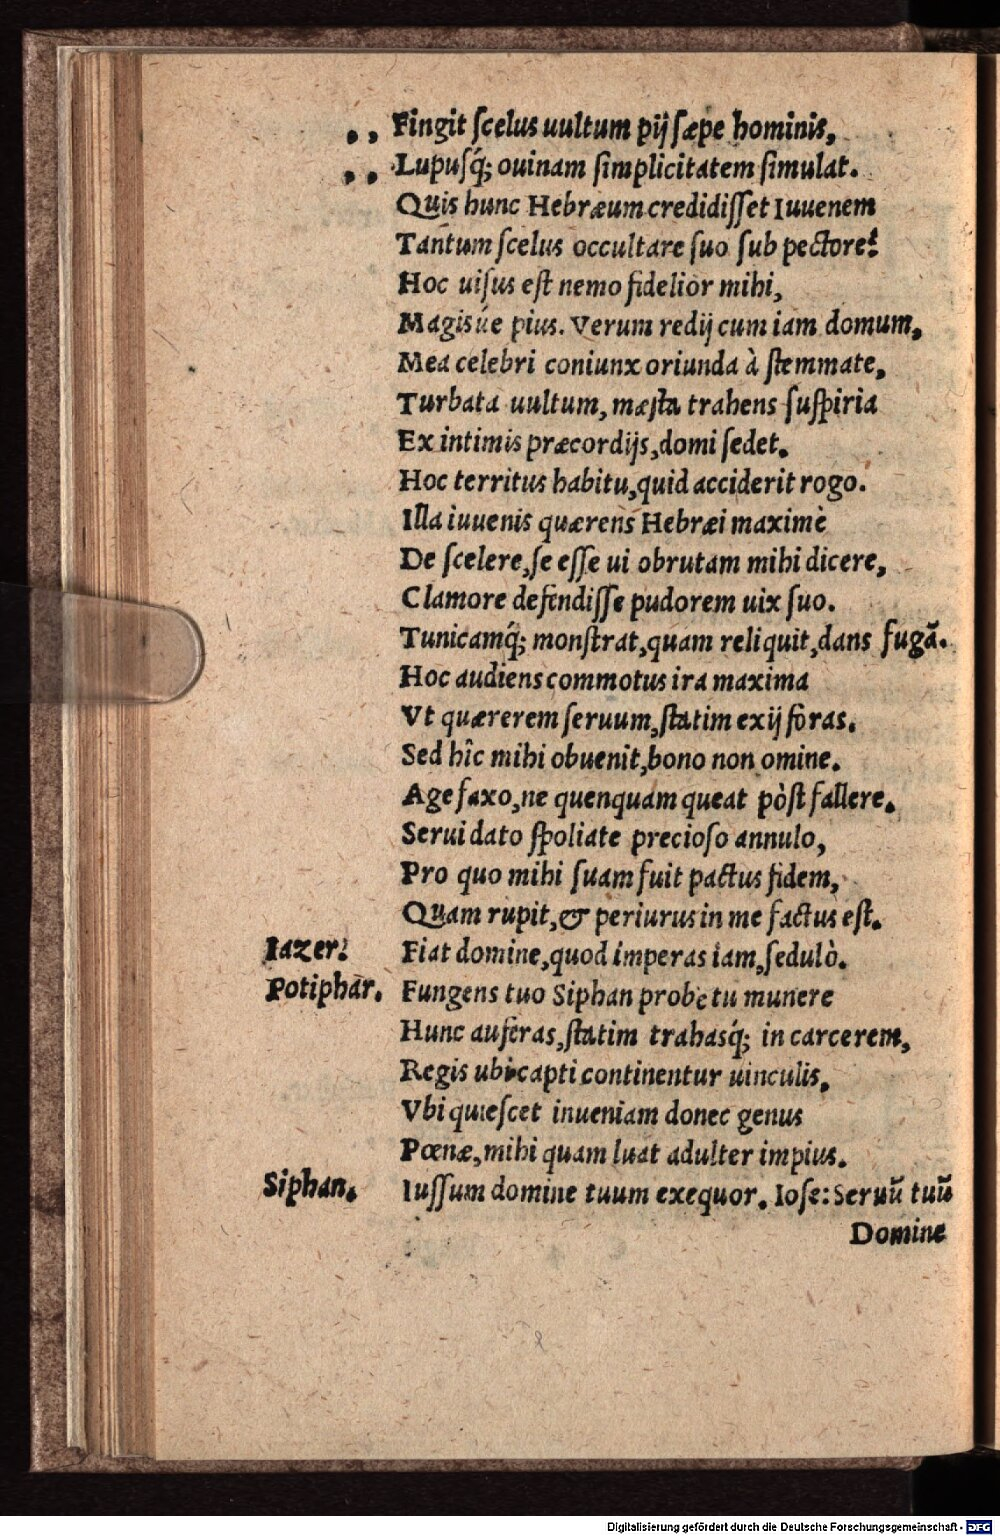 ,, Fingit ſcelus uultum pij ſæpe hominis,
,, Lupuſq́; ouinam ſimplicitatem ſimulat.
Quis hunc Hebræum credidiſſet Iuuenem
Tantum ſcelus occultare ſuo ſub pectore?
Hoc uiſus eſt nemo fidelior mihi,
Magisúe pius. Verum redij cum iam domum,
Mea celebri coniunx oriunda à ſtemmate,
Turbata uultum, mæſta trahens ſuſpiria
Ex intimis præcordijs, domi ſedet.
Hoc territus habitu, quid acciderit rogo.
Illa iuuenis quærens Hebræi maximè
De ſcelere, ſe eſſe ui obrutam mihi dicere,
Clamore defendiſſe pudorem uix ſuo.
Tunicamq́; monſtrat, quam reliquit, dans fugã.
Hoc audiens commotus ira maxima
Vt quærerem ſeruum, ſtatim exij foras.
Sed hîc mihi obuenit, bono non omine.
Age faxo, ne quenquam queat pòſt fallere.
Serui dato ſpoliate precioſo annulo,
Pro quo mihi ſuam fuit pactus fidem,
Quam rupit, & periurus in me factus eſt.
Iazer. Fiat domine, quod imperas iam, ſedulò.
Potiphar. Fungens tuo Siphan probe tu munere
Hunc auferas, ſtatim trahasq́; in carcerem,
Regis ubi capti continentur uinculis,
Vbi quieſcet inueniam donec genus
Pœnæ, mihi quam luat adulter impius.
Siphan. Iuſſum domine tuum exequor. Ioſe: Seruũ tuũ
Domine
Digitalisierung gefördert durch die Deutsche Forschungsgemeinschaft - DFG